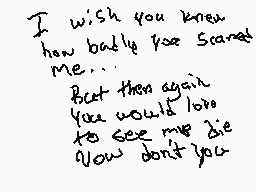 I wish you knew
how badly you scared
me...
But then again
you would love
to see me die
Now don't you